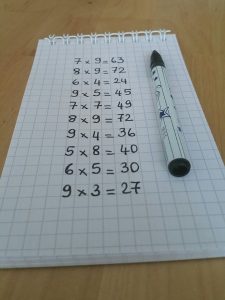 7 × 9 = 63
8 × 9 = 72
6 × 4 = 24
9 × 5 = 45
7 × 7 = 49
8 × 9 = 72
9 × 4 = 36
5 × 8 = 40
6 × 5 = 30
9 × 3 = 27